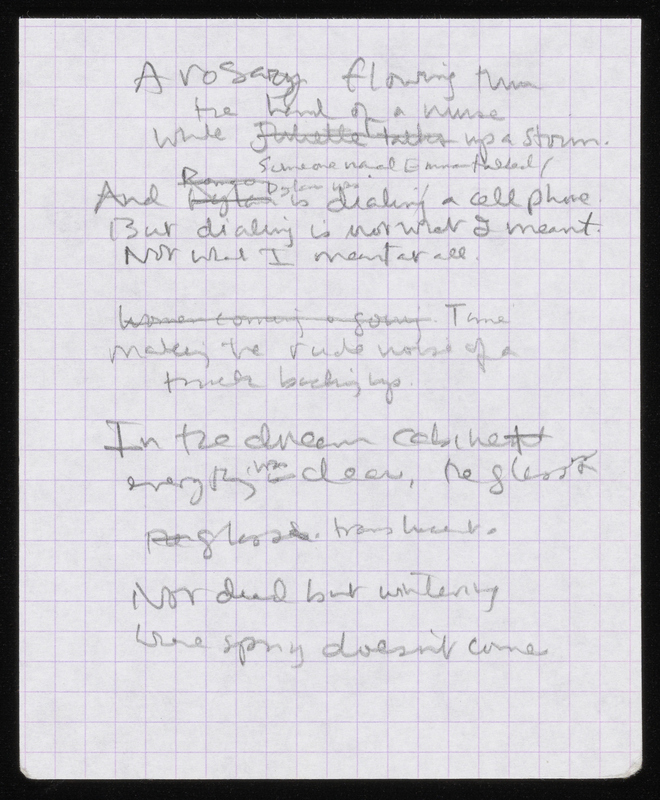 A rosary flowing thru
the hand of a nurse
while Juliette talks up a storm.
Someone named Emma talked/
Romeo Dylan was
And Dylan is dialing a cell phone.
But dialing is not what I meant.
Not what I meant at all.
Women coming & going. Time
making the rude noise of a
truck backing up.
In the dream cabinet
everything was clear, the glass
glass translucent.
Not dead but wintering
where spring doesn't come